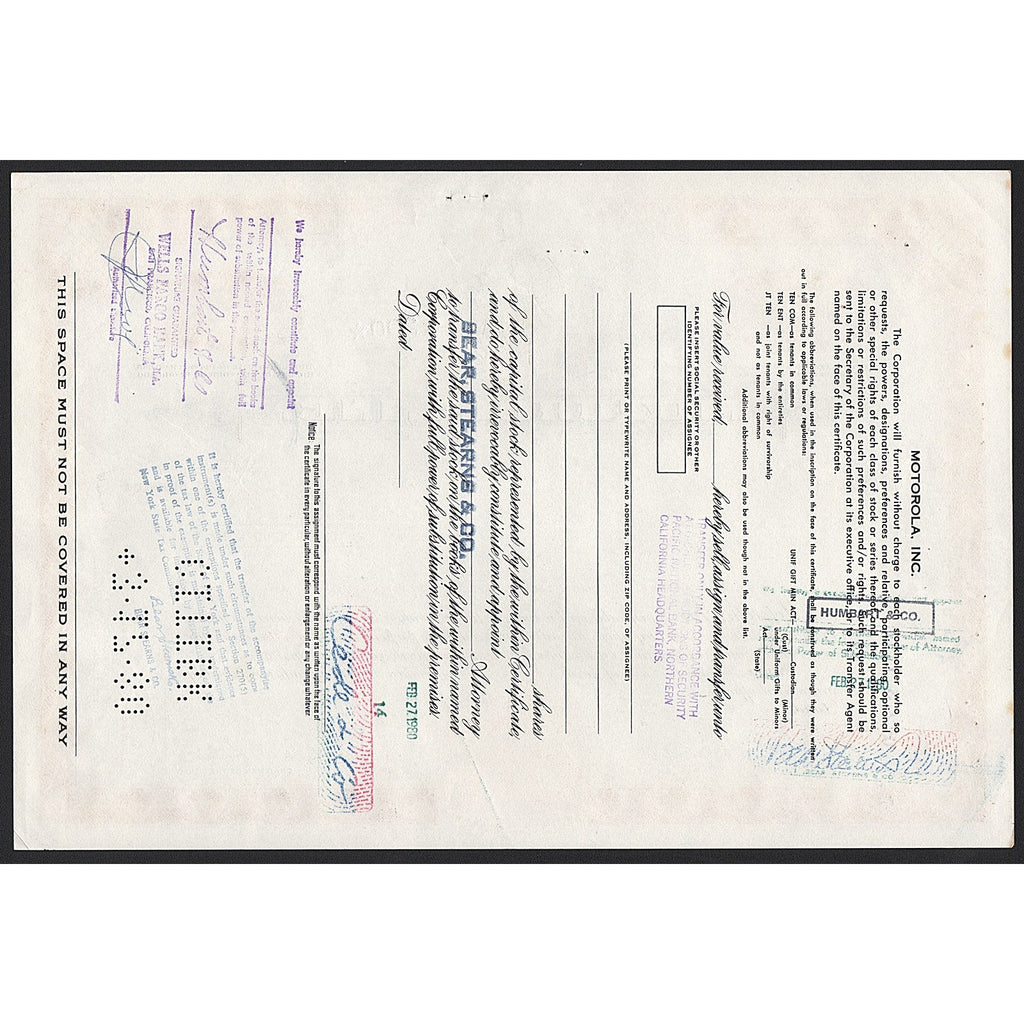 MOTOROLA, INC.
The Corporation will furnish without charge to each stockholder who so
requests, the powers, designations, preferences and relative, participating, optional
or other special rights of each class of stock or series thereof and the qualifications,
limitations or restrictions of such preferences and/or rights. Such request should be
sent to the Secretary of the Corporation at its executive office, or to its Transfer Agent
named on the face of this certificate.
HUMBERT & CO.
The following abbreviations, when used in the inscription on the face of this certificate, shall be construed as though they were written
out in full according to applicable laws or regulations:
TEN COM—as tenants in common
TEN ENT —as tenants by the entireties
JT TEN —as joint tenants with right of survivorship
and not as tenants in common
UNIF GIFT MIN ACT— Custodian
(Cust) (Minor)
under Uniform Gifts to Minors
Act
(State)
Additional abbreviations may also be used though not in the above list.
For value received, hereby sell, assign and transfer unto
PLEASE INSERT SOCIAL SECURITY OR OTHER
IDENTIFYING NUMBER OF ASSIGNEE
TRANSFER ONLY IN ACCORDANCE WITH
OF SECURITY
PACIFIC NATIONAL BANK, NORTHERN
CALIFORNIA HEADQUARTERS.
(PLEASE PRINT OR TYPEWRITE NAME AND ADDRESS, INCLUDING ZIP CODE, OF ASSIGNEE)
shares
of the capital stock represented by the within Certificate,
and do hereby irrevocably constitute and appoint
BEAR, STEARNS & CO.
Attorney
to transfer the said stock on the books of the within named
Corporation with full power of substitution in the premises.
Dated
FEB 27 1980
14
Notice: The signature to this assignment must correspond with the name as written upon the face of
the certificate in every particular, without alteration or enlargement or any change whatever
We hereby irrevocably constitute and appoint
Attorney, to transfer the
of the within named
power of substitution in the premises.
SIGNATURE GUARANTEED
WELLS FARGO BANK, N.A.
SAN FRANCISCO, CALIFORNIA
Authorized Signature
It is hereby certified that the transfer of the accompanying
instrument(s) is made under such circumstances as to come
within one of the exemptions specified in Section 270(5)
of the tax law of the State of New York and that evidence
in proof of the exemption
and is available for
New York State Tax Commission
BEAR STEARNS & CO.
THIS SPACE MUST NOT BE COVERED IN ANY WAY